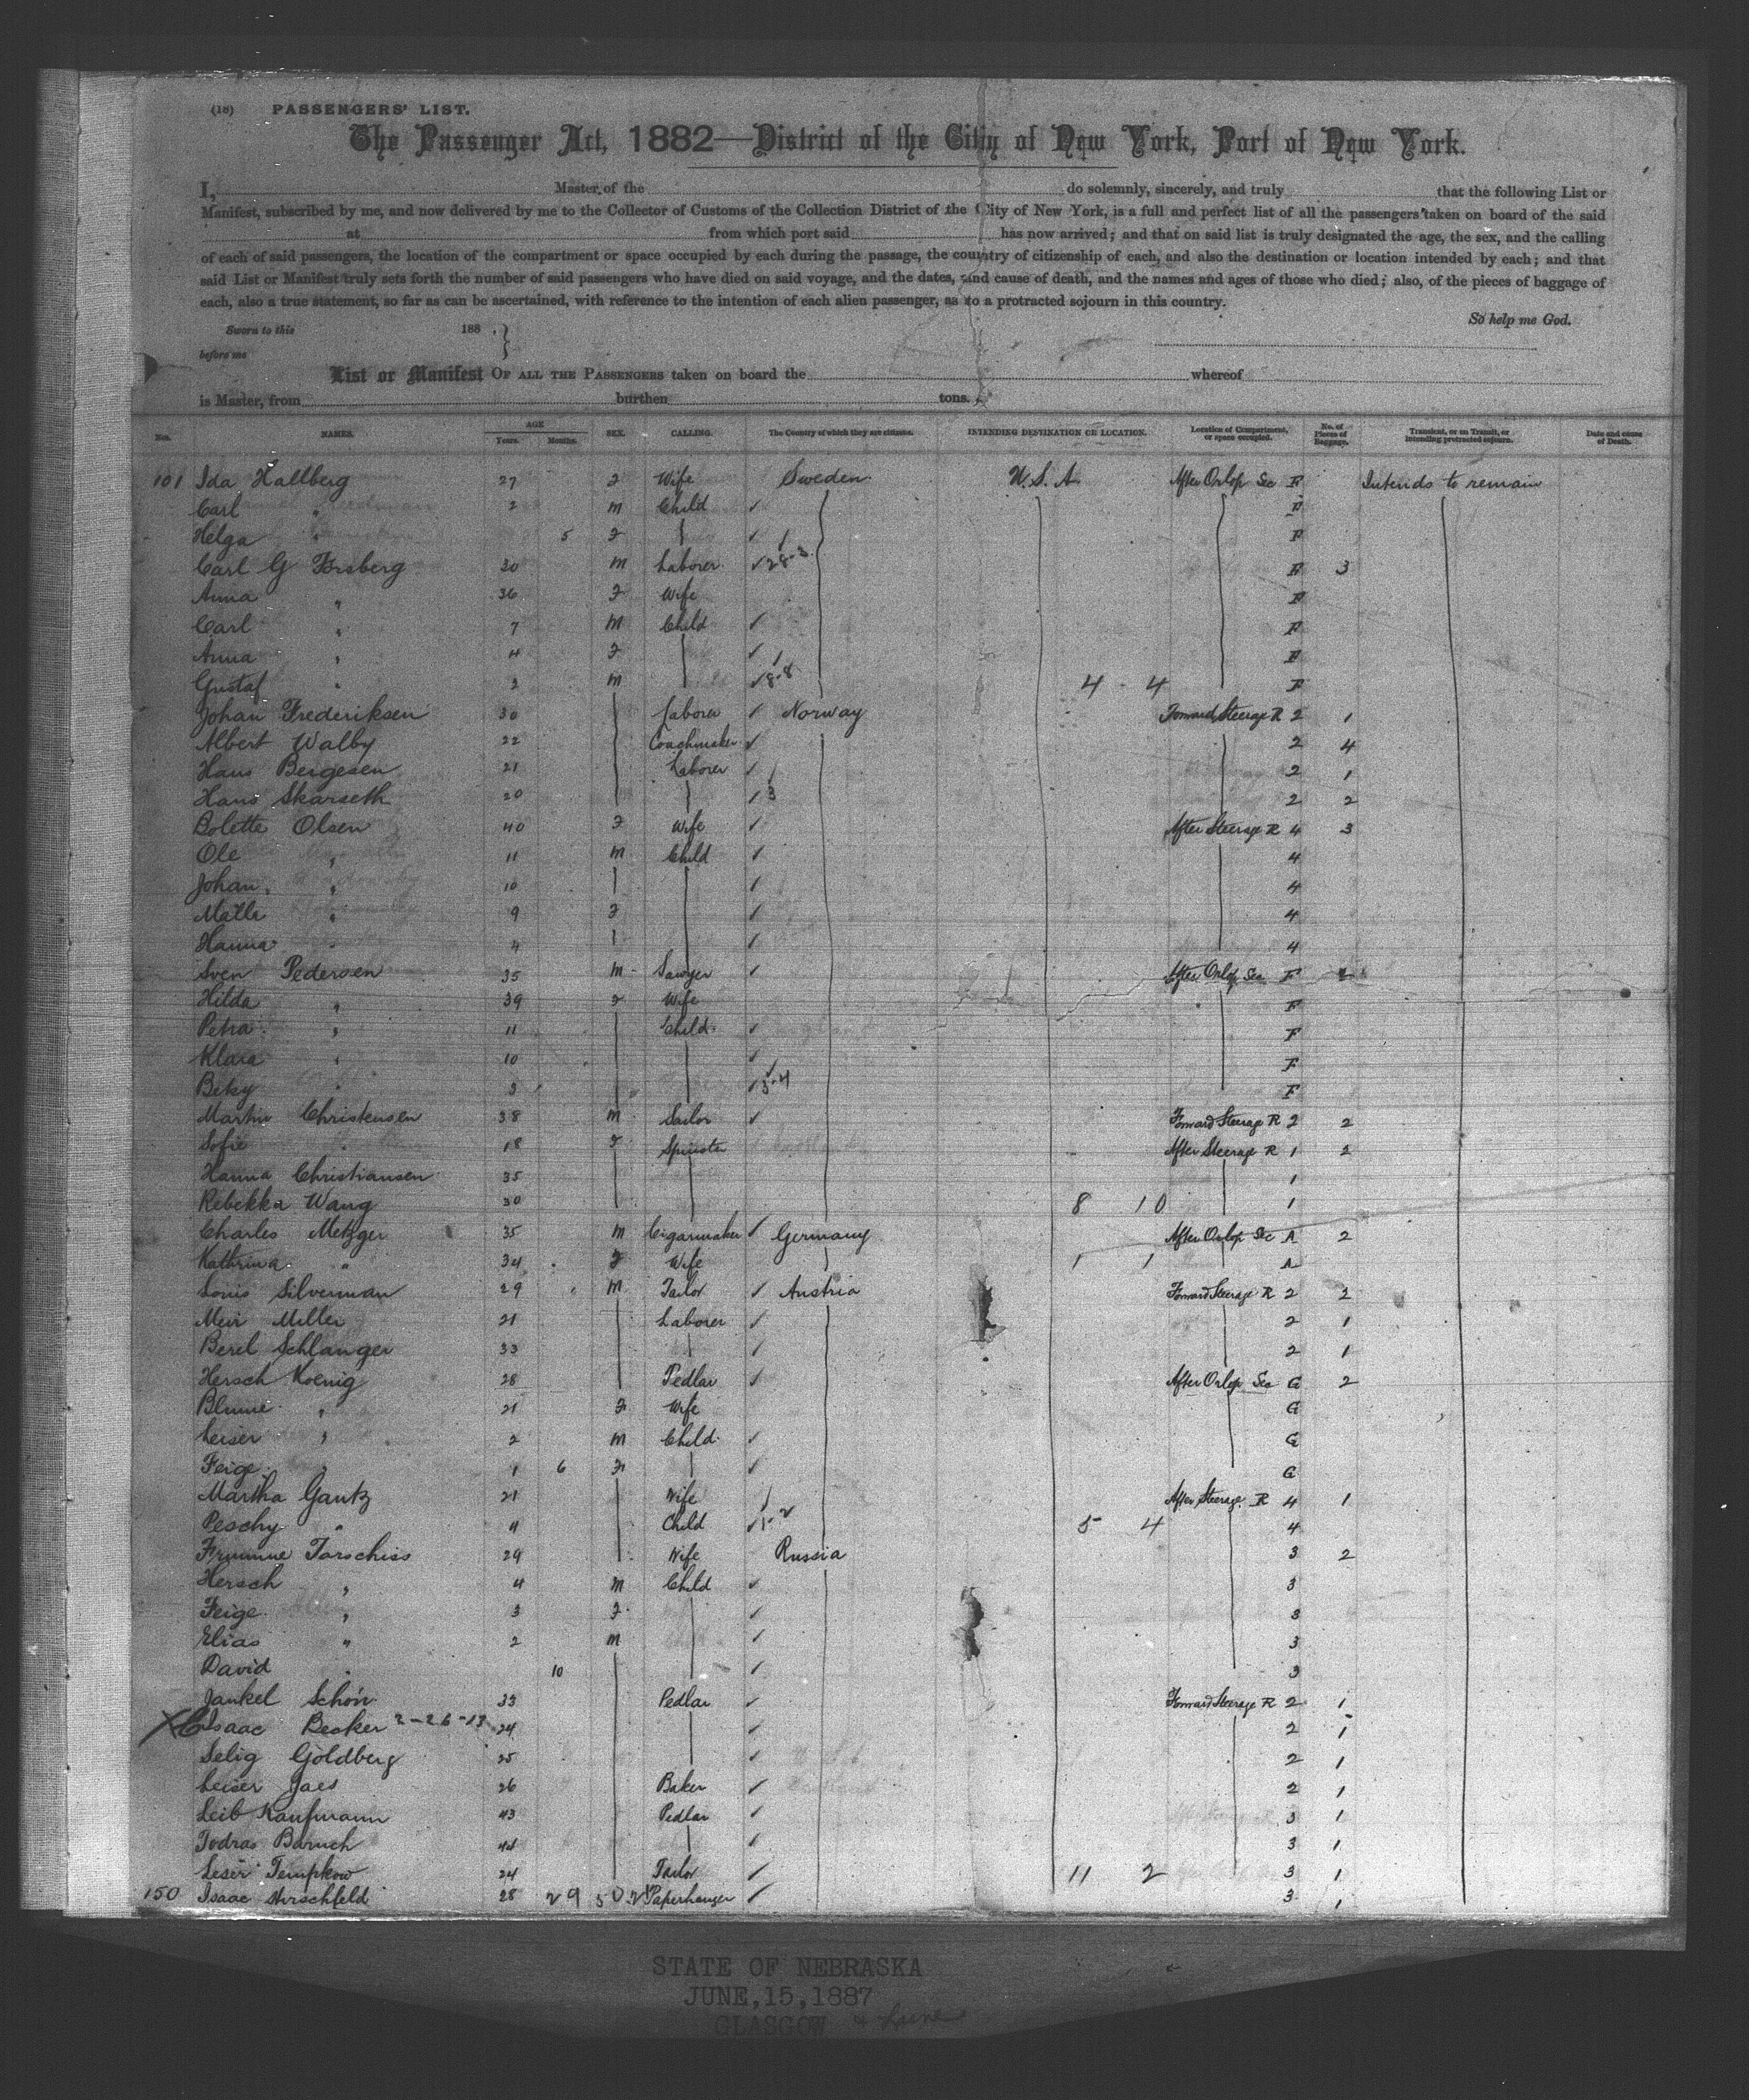 (18) PASSENGERS' LIST.
The Passenger Act, 1882—District of the City of New York, Port of New York.
I, Master of the do solemnly, sincerely, and truly that the following List or
Manifest, subscribed by me, and now delivered by me to the Collector of Customs of the Collection District of the City of New York, is a full and perfect list of all the passengers taken on board of the said
at from which port said has now arrived; and that on said list is truly designated the age, the sex, and the calling
of each of said passengers, the location of the compartment or space occupied by each during the passage, the country of citizenship of each, and also the destination or location intended by each; and that
said List or Manifest truly sets forth the number of said passengers who have died on said voyage, and the dates, and cause of death, and the names and ages of those who died; also, of the pieces of baggage of
each, also a true statement, so far as can be ascertained, with reference to the intention of each alien passenger, as to a protracted sojourn in this country.
So help me God.
Sworn to this 188 .
before me
List or Manifest OF ALL THE PASSENGERS taken on board the whereof
is Master, from burthen tons.
Nos. NAMES. AGE Years. Months. SEX. CALLING. The Country of which they are citizens. INTENDING DESTINATION OR LOCATION. Location of Compartment, or space occupied. No. of Pieces of Baggage. Transient, or in Transit, or intending protracted sojourn. Date and cause of Death.
101 Ida Hallberg 27 F Wife Sweden U.S.A. After Orlop Sec F Intends to remain
Carl " 2 m Child ✓ F
Helga " 5 F ✓ F
Carl G Forsberg 30 m Laborer ✓ 28-3 F 3
Anna " 36 F Wife F
Carl " 7 m Child ✓ F
Anna " 4 F ✓ F
Gustaf " 2 m ✓ 8-8 4 - 4 F
Johan Frederiksen 30 Laborer ✓ Norway Forward Steerage R 2 1
Albert Walby 22 Coachmaker ✓ 2 4
Hans Bergesen 21 Laborer ✓ 2 1
Hans Skarseth 20 ✓ 3 2 2
Bolette Olsen 40 F Wife ✓ After Steerage R 4 3
Ole " 11 m Child ✓ 4
Johan " 10 ✓ 4
Malla " 9 F ✓ 4
Hanna " 4 ✓ 4
Sven Pedersen 35 m Sawyer ✓ After Orlop Sec F
Hilda " 39 F Wife F
Petra " 11 Child ✓ F
Klara " 10 ✓ F
Beky " 3 ✓ 3-4 F
Martin Christensen 38 m Sailor ✓ Forward Steerage R 2 2
Sofie " 18 F Spinster After Steerage R 1 2
Hanna Christiansen 35 1
Rebekka Wang 30 8 10 1
Charles Metzger 35 m Cigarmaker ✓ Germany After Orlop Sec A 2
Kathrina " 34 F Wife 1 1 A
Louis Silverman 29 m Tailor ✓ Austria Forward Steerage R 2 2
Meir Miller 21 Laborer ✓ 2 1
Berel Schlanger 33 ✓ 2 1
Hersch Koenig 28 Pedlar ✓ After Orlop Sec G 2
Blume " 21 F Wife G
Leiser " 2 m Child ✓ G
Feige " 1 6 F ✓ G
Martha Gantz 21 Wife After Steerage R 4 1
Peschy " 4 Child ✓ 1-2 5 4 4
Frumme Tarschiss 29 Wife Russia 3 2
Hersch " 4 m Child ✓ 3
Feige " 3 F ✓ 3
Elias " 2 m ✓ 3
David " 10 ✓ 3
Jankel Schön 33 Pedlar ✓ Forward Steerage R 2 1
X Isaac Becker 2-26-13 24 ✓ 2 1
Selig Goldberg 25 ✓ 2 1
Leiser Jaes 26 Baker ✓ 2 1
Leib Kaufmann 43 Pedlar ✓ 3 1
Todras Baruch 44 ✓ 3 1
Leser Tempkow 24 Tailor ✓ 11 2 3 1
150 Isaac Hirschfeld 28 29 50.21 Paperhanger ✓ 3 1
STATE OF NEBRASKA
JUNE,15,1887
GLASGOW